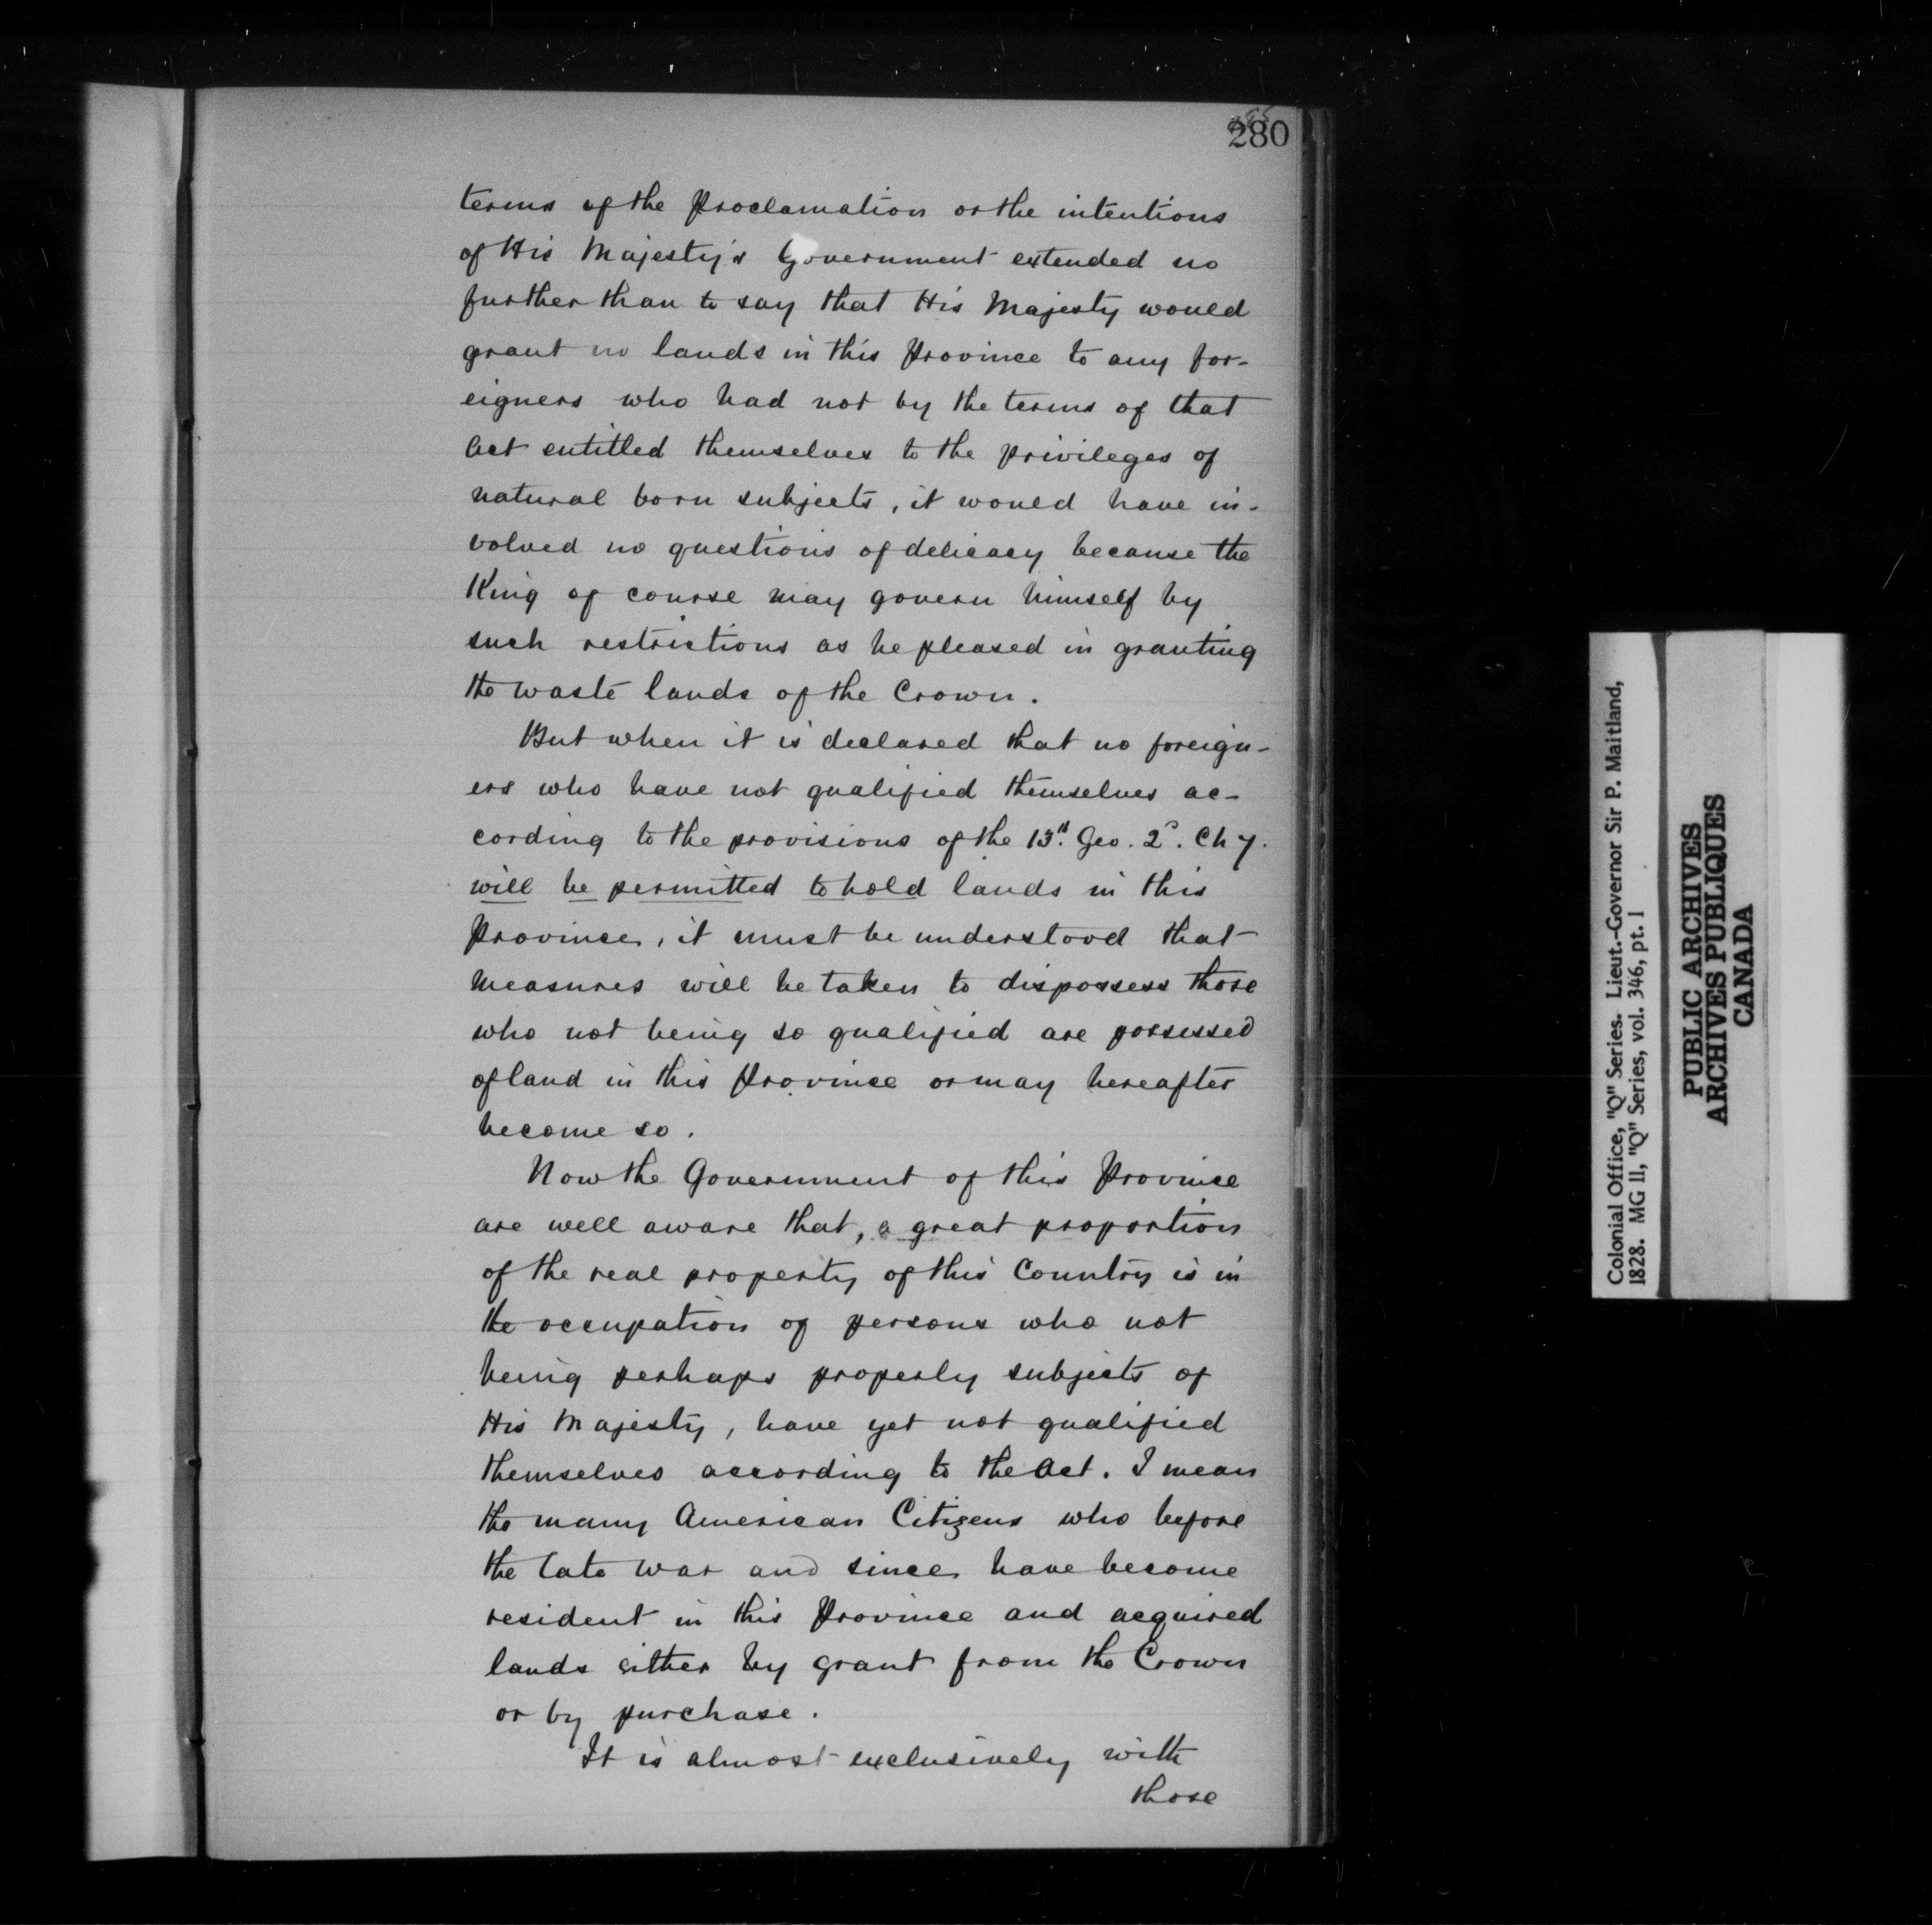 280
terms of the Proclamation or the intentions
of His Majesty's Government extended no
further than to say that His Majesty would
grant no lands in this Province to any for-
eigners who had not by the terms of that
Act entitled themselves to the privileges of
natural born subjects, it would have in-
volved no questions of delicacy because the
King of course may govern himself by
such restrictions as he pleased in granting
the waste lands of the Crown.
But when it is declared that no foreign-
ers who have not qualified themselves ac-
cording to the provisions of the 13th. Geo. 2d. Ch 7.
will be permitted to hold lands in this
Province, it must be understood that
measures will be taken to dispossess those
who not being so qualified are possessed
of land in this Province or may hereafter
become so.
Now the Government of this Province
are well aware that, a great proportion
of the real property of this Country is in
the occupation of persons who not
being perhaps properly subjects of
His Majesty, have yet not qualified
themselves according to the Act. I mean
the many American Citizens who before
the late War and since have become
resident in this Province and acquired
lands either by grant from the Crown
or by purchase.
It is almost exclusively with
those
Colonial Office, "Q" Series. Lieut.-Governor Sir P. Maitland,
1828. MG 11, "Q" Series, vol. 346, pt. 1
PUBLIC ARCHIVES
ARCHIVES PUBLIQUES
CANADA